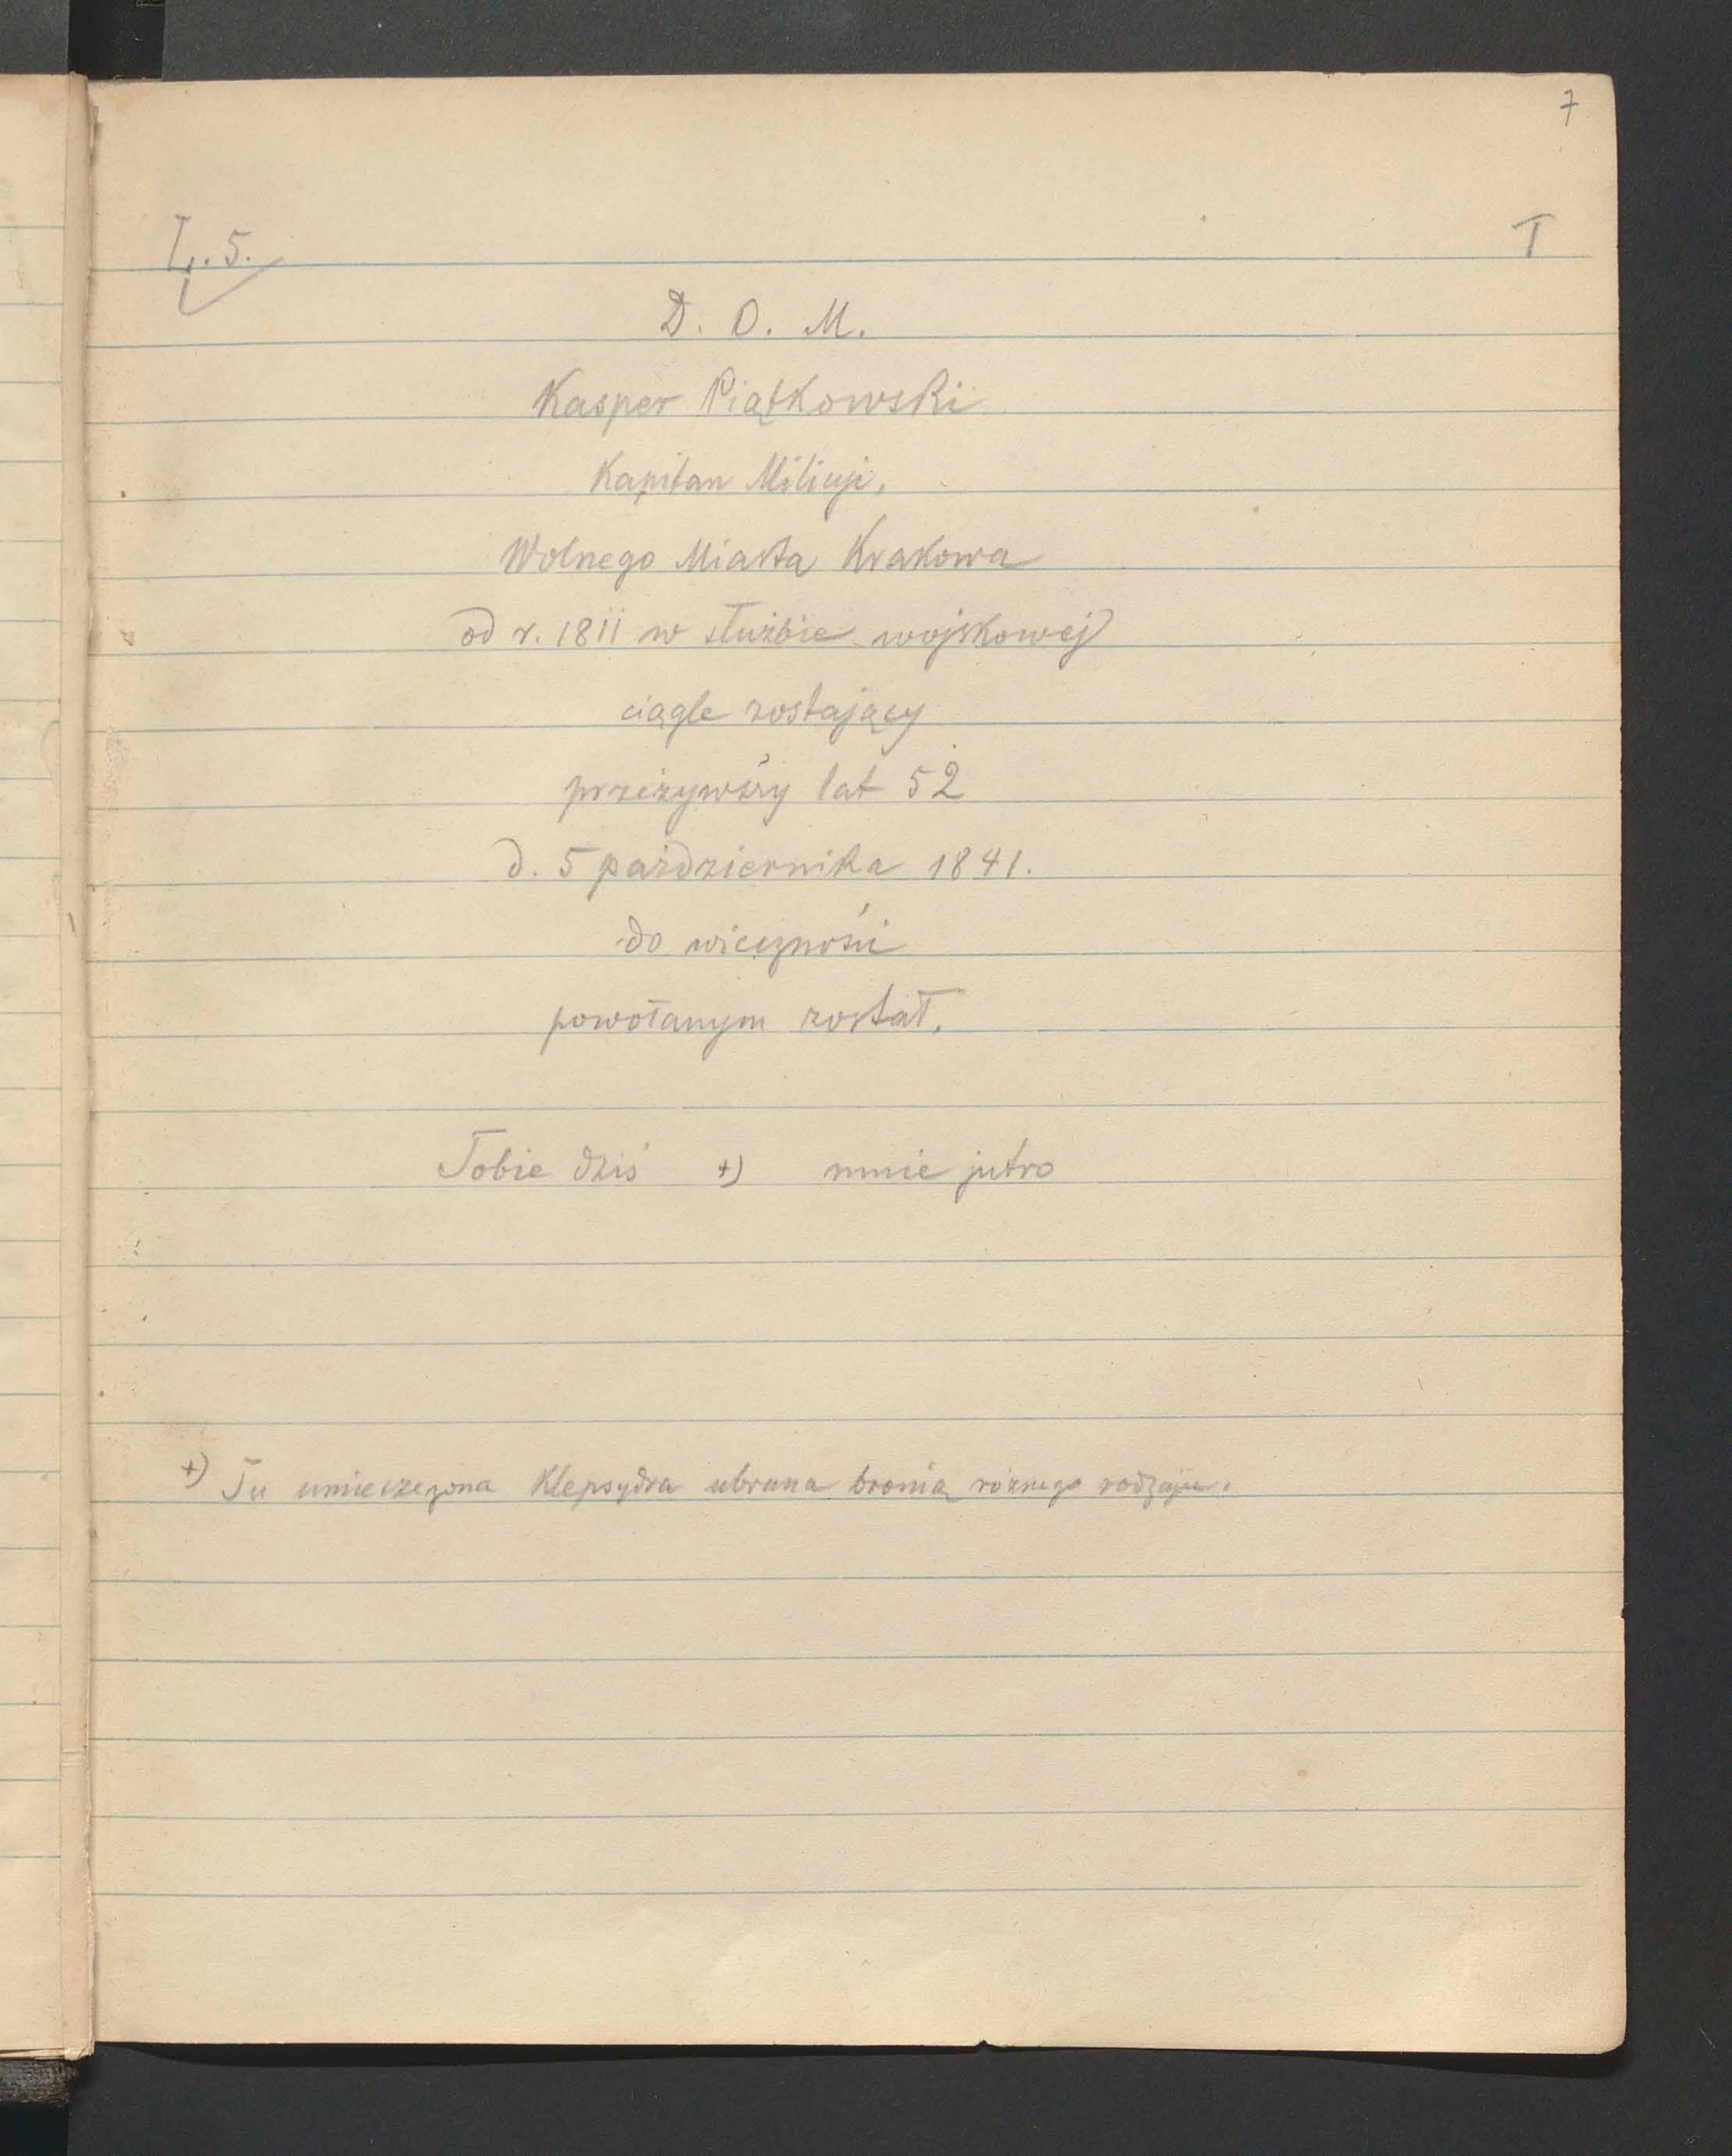 7
L. 5.
T
D. O. M.
Kasper Piątkowski
Kapitan Milicji.
Wolnego Miasta Krakowa
od r. 1811 w służbie wojskowej
ciągle zostający
przeżywszy lat 52
d. 5 października 1841.
do wieczności
powołanym został.
Tobie dziś +) mnie jutro
+) Tu umieszczona Klepsydra ubrana bronią różnego rodzaju.